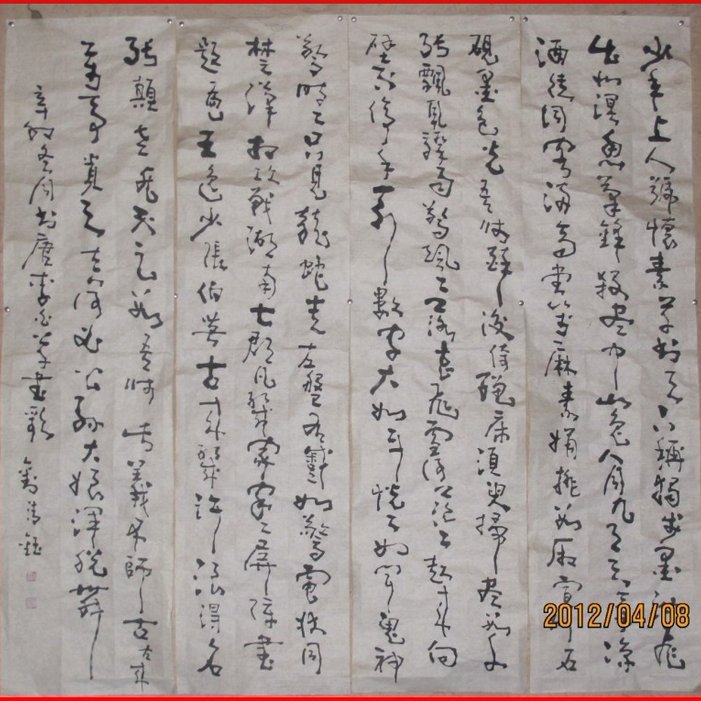 少年上人號懷素草書天下稱獨步墨池飛
出北溟魚筆鋒殺盡中山兔八月九月天氣涼
酒徒詞客滿高堂箋麻素絹排數廂宣州石
硯墨色光吾師醉後倚繩床須臾掃盡數千
張飄風驟雨驚颯颯落花飛雪何茫茫起來向
壁不停手一行數字大如斗恍恍如聞鬼神
驚時時只見龍蛇走左盤右蹙如驚電狀同
楚漢相攻戰湖南七郡凡幾家家家屏障書
題遍王逸少張伯英古來幾許浪得名
張顛老死不足數吾師此義不師古古來
萬事貴天生何必公孫大娘渾脫舞
辛卯冬月書唐李白草書歌
2012/04/08